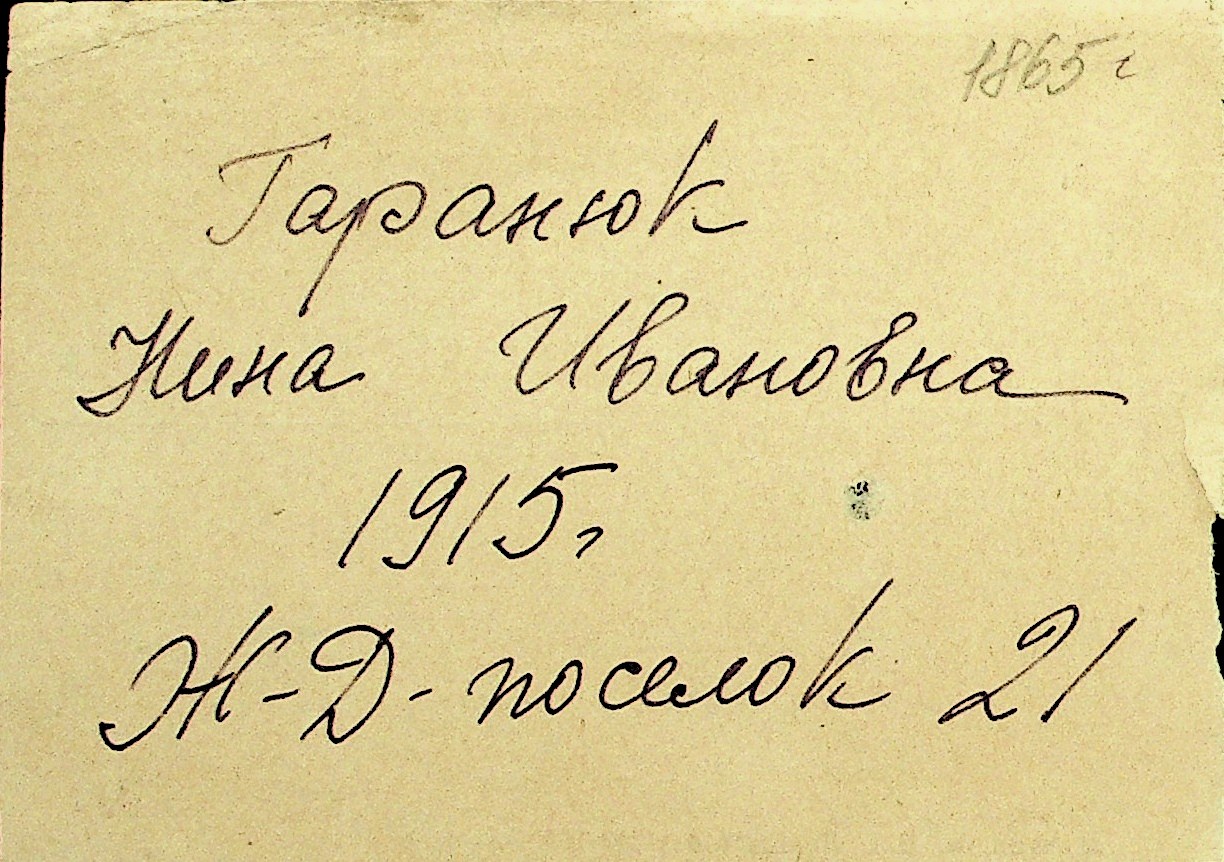 1865 г
Гаранюк
Нина Ивановна
1915г
Ж-Д-поселок 21